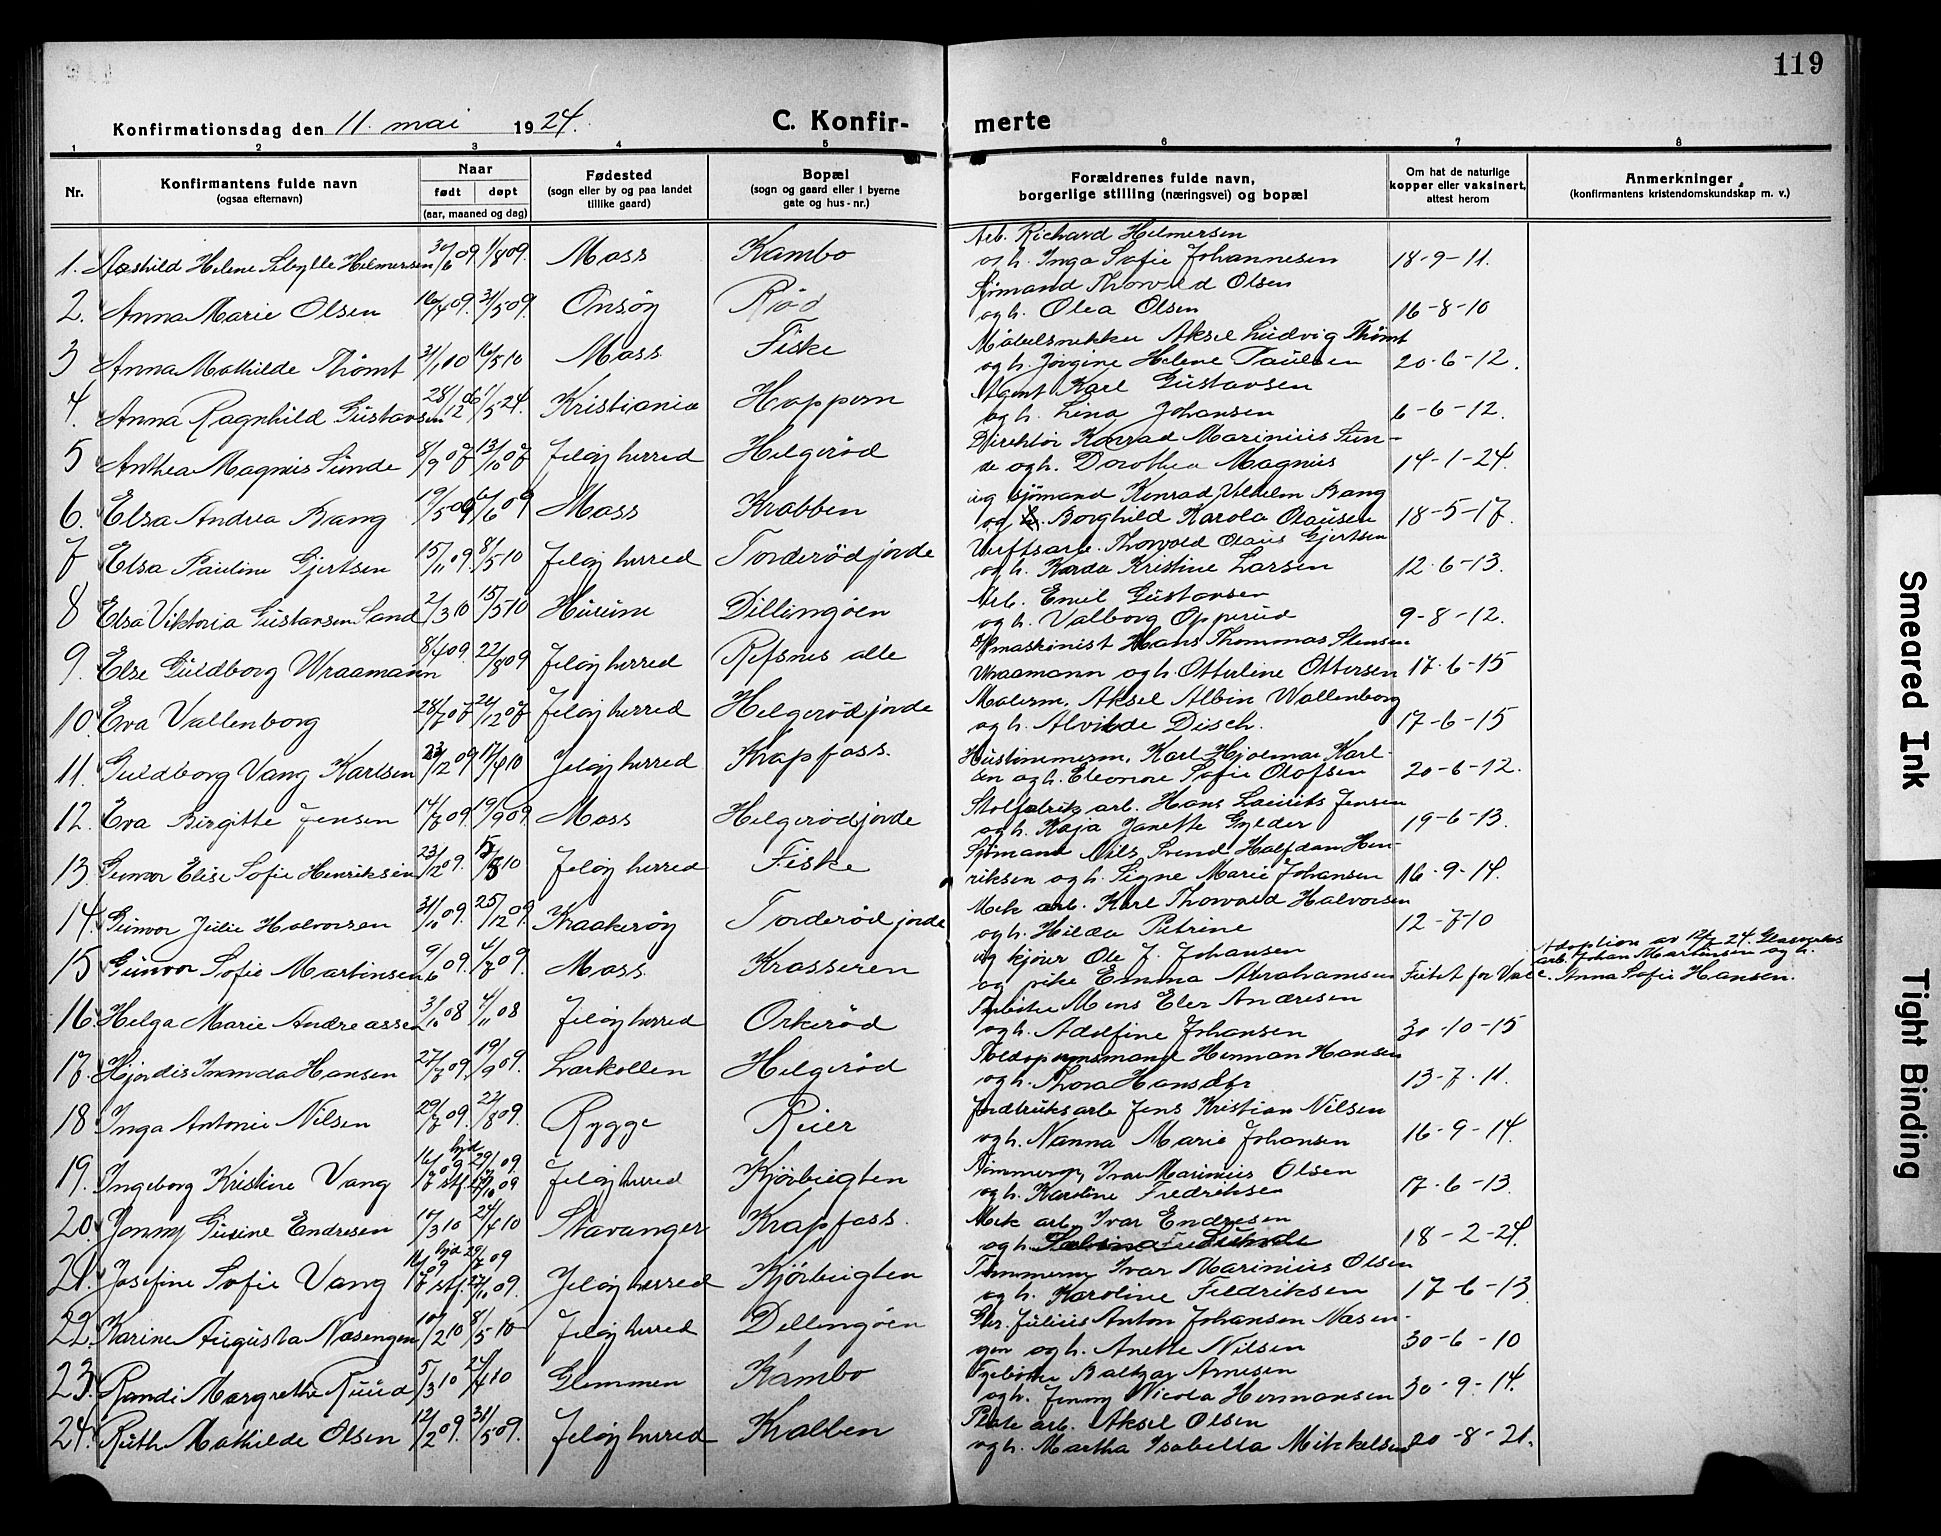 119
Konfirmationsdag den 11. mai 1924. C. Konfirmerte
1 2 3 4 5 6 7 8
Nr. Konfirmantens fulde navn (ogsaa efternavn) Naar født døpt (aar, maaned og dag) Fødested (sogn eller by og paa landet tillike gaard) Bopæl (sogn og gaard eller i byerne gate og hus-nr.) Forældrenes fulde navn, borgerlige stilling (næringsvei) og bopæl Om hat de naturlige kopper eller vaksinert, attest herom Anmerkninger (konfirmantens kristendomskundskap m. v.)
Arb. Richard Helmersen
1. Aashild Helene Sibylle Helmersen 30/6 09 1/8 09. Moss Kambo og h. Inga Sofie Johannesen 18-9-11.
Sjømand Thorvald Olsen
2. Anna Marie Olsen 16/4 09. 31/5 09. Onsøy Rød og h. Olea Olsen 16-8-10
Møbelsnekker Aksel Ludvig Thømt
3 Anna Mathilde Thømt 31/1 10 16/5 10 Moss Fiske og h. Jørgine Helene Paulsen 20-6-12.
Agent Karl Gustavsen
4. Anna Ragnhild Gustavsen 28/12 06 /5 24. Kristiania Hoppern og h. Lina Johansen 6-6-12.
Direktør Konrad Marinius Sun-
5 Anthea Magnus Sunde 8/9 07 13/10 07 Jeløy herred Helgerød de og h. Dorothea Magnus 14-1-24.
ug sjømand Konrad Vilhelm Bang
6. Elsa Andrea Bang 19/5 09 6/6 09 Moss Krabben og Borghild Karola Olausen 18-5-17.
Verftsarb. Thorvald Olaus Gjertsen
7 Elsa Pauline Gjertsen 15/11 09. 8/5 10 Jeløy herred Torderødjorde og h. Karda Kristine Larsen 12-6-13.
Arb. Emil Gustavsen
8 Elsa Viktoria Gustavsen Sand 2/3 10 15/5 10 Hurum Dillingøen og h. Valborg Opperud 9-8-12.
maskinist Hans Thommas Stensen
9. Else Guldborg Wraamann 8/4 09. 22/8 09 Jeløy herred Refsnes alle Wraamann og h. Otterline Ottersen 17-6-15
Malerm. Aksel Albin Wallenborg
10. Eva Vallenborg 28/7 07 26/12 07 Jeløy herred Helgerødjorde og h. Alvilde Disch. 17-6-15
Hustimmerm. Karl Hjalmar Karl-
11. Guldborg Vang Karlsen 23/12 09 17/4 10 Jeløy herred Krapfoss. sen og h. Eleonore Sofie Olafsen 20-6-12.
Stolfabrik arb. Hans Laurits Jensen
12. Eva Birgitte Jensen 14/7 09. 19/9 09. Moss Helgerødjorde og h. Kaja Janette Gylder 19-6-13.
Sjømand Nils Svend Halfdan Hen-
13. Gunvor Elise Sofie Henriksen 23/12 09. 15/8 10 Jeløy herred Fiske riksen og h. Signe Marie Johansen 16-9-14.
Mek arb. Karl Thorvald Halvorsen
14. Gunvor Julie Halvorsen 31/10 09. 25/12 09. Kraakerøy Torderød jorde og h. Hilda Petrine 12-7-10
ug kjører Ole J. Johansen Adoption av 12/2 24. Glassverks
15 Gunvor Sofie Martinsen 9/6 09. 4/7 09. Moss Krosseren og pike Emma Abrahamsen Fritat for Vacc. arb. Johan Martinsen og h. Anna Sofie Hansen.
Fyrbøter Mons Eler Andresen
16. Helga Marie Andreassen 3/10 08 4/11 08 Jeløy herred Orkerød og h. Adolfine Johansen 30-10-15
Toldopsynsmand Herman Hansen
17. Hjørdis Inanda Hansen 27/7 09. 19/9 09. Larkollen Helgerød og h. Thora Hansdtr 13-7-11.
Indbruksarb Jens Kristian Nilsen
18 Inga Antonie Nilsen 29/7 09. 22/8 09. Rygge Reier og h. Nanna Marie Johansen 16-9-14.
Tømmerm. Ivar Marinius Olsen
19. Ingeborg Kristine Vang 16/7 09 hjd 29/7 09. stf. 27/10 09 Jeløy herred Kjørbugten og h. Karoline Fredriksen 17-6-13.
Mek arb. Ivar Endresen
20. Jenny Gusine Endresen 10/3 10 24/4 10 Stavanger Krapfoss. og h. 18-2-24.
Tømmerm Ivar Marinius Olsen
21. Josefine Sofie Vang 16/7 09 hjd 29/7 09 stf. 27/10 09. Jeløy herred Kjørbugten og h. Karoline Fredriksen 17-6-13
Julius Anton Johansen Næsen-
22. Karine Augusta Næsengen 10/2 10 8/5 10 Jeløy herred Dillingøen gen og h. Anette Nilsen 30-6-10
Fyrbøter Baltzar Arnesen
23. Randi Margrethe Ruud 5/3 10 24/4 10 Glemmen Kambo og h. Jenny Nicola Hermansen 30-9-14.
Plate arb. Aksel Olsen
24. Ruth Mathilde Olsen 12/2 09. 31/5 09. Jeløy herred Krabben og h. Martha Isabella Mikkelsen 20-8-21.
Smeared Ink
Tight Binding